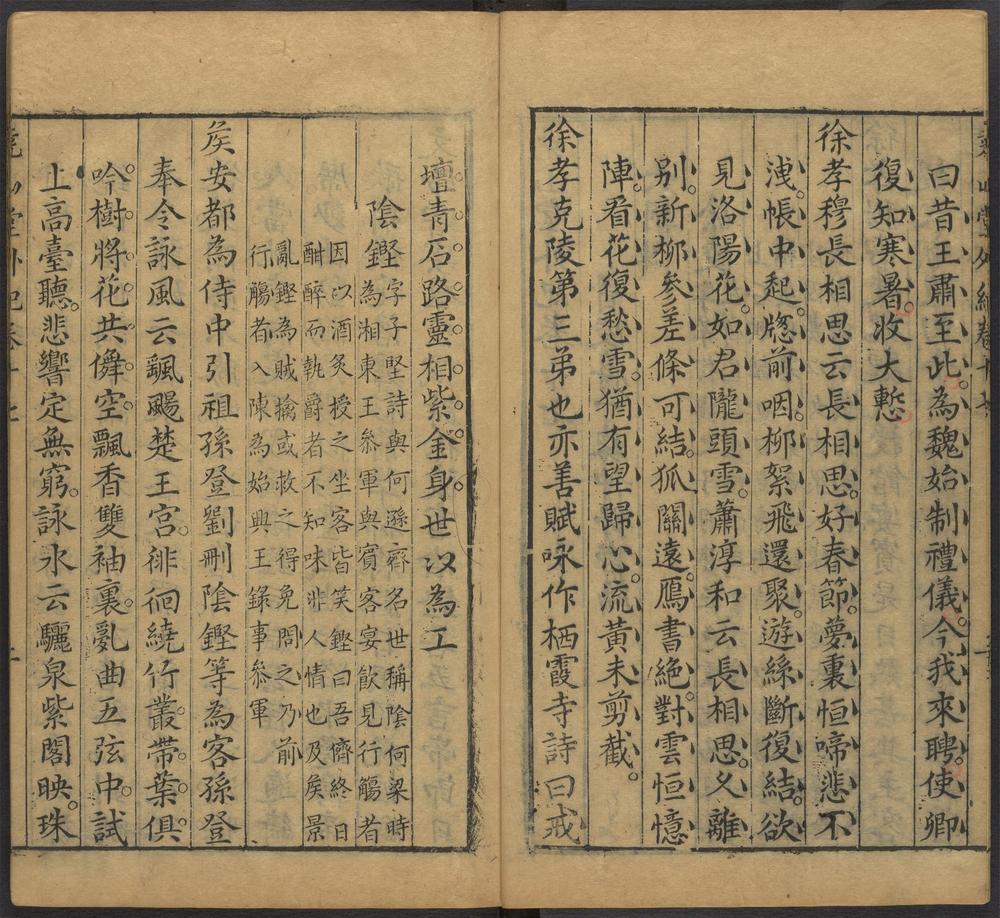 曰昔王肅至此為魏始制禮儀今我來聘使卿
復知寒暑收大慙
徐孝穆長相思云長相思好春節夢裏恒啼悲不
洩帳中起牕前咽柳絮飛還聚遊絲斷復結欲
見洛陽花如君隴頭雪蕭淳和云長相思久離
別新柳參差條可結狐關遠鴈書絕對雲恒憶
陣看花復愁雪猶有望歸心流黃未剪截
徐孝克陵第三弟也亦善賦咏作栖霞寺詩曰戒
壇青石路靈相紫金身世以為工
陰鏗字子堅詩與何遜齊名世稱陰何梁時
為湘東王參軍與賓客宴飲見行觴者
因以酒炙授之坐客皆笑鏗曰吾儕終日
酣醉而執爵者不知味非人情也及矦景
亂鏗為賊擒或救之得免問之乃前
行觴者入陳為始興王錄事參軍
矦安都為侍中引祖孫登劉刪陰鏗等為客孫登
奉令詠風云飄颺楚王宮徘徊繞竹叢帶葉俱
吟樹將花共儛空飄香雙袖裏亂曲五弦中試
上高臺聽悲響定無窮詠水云驪泉紫閣映珠